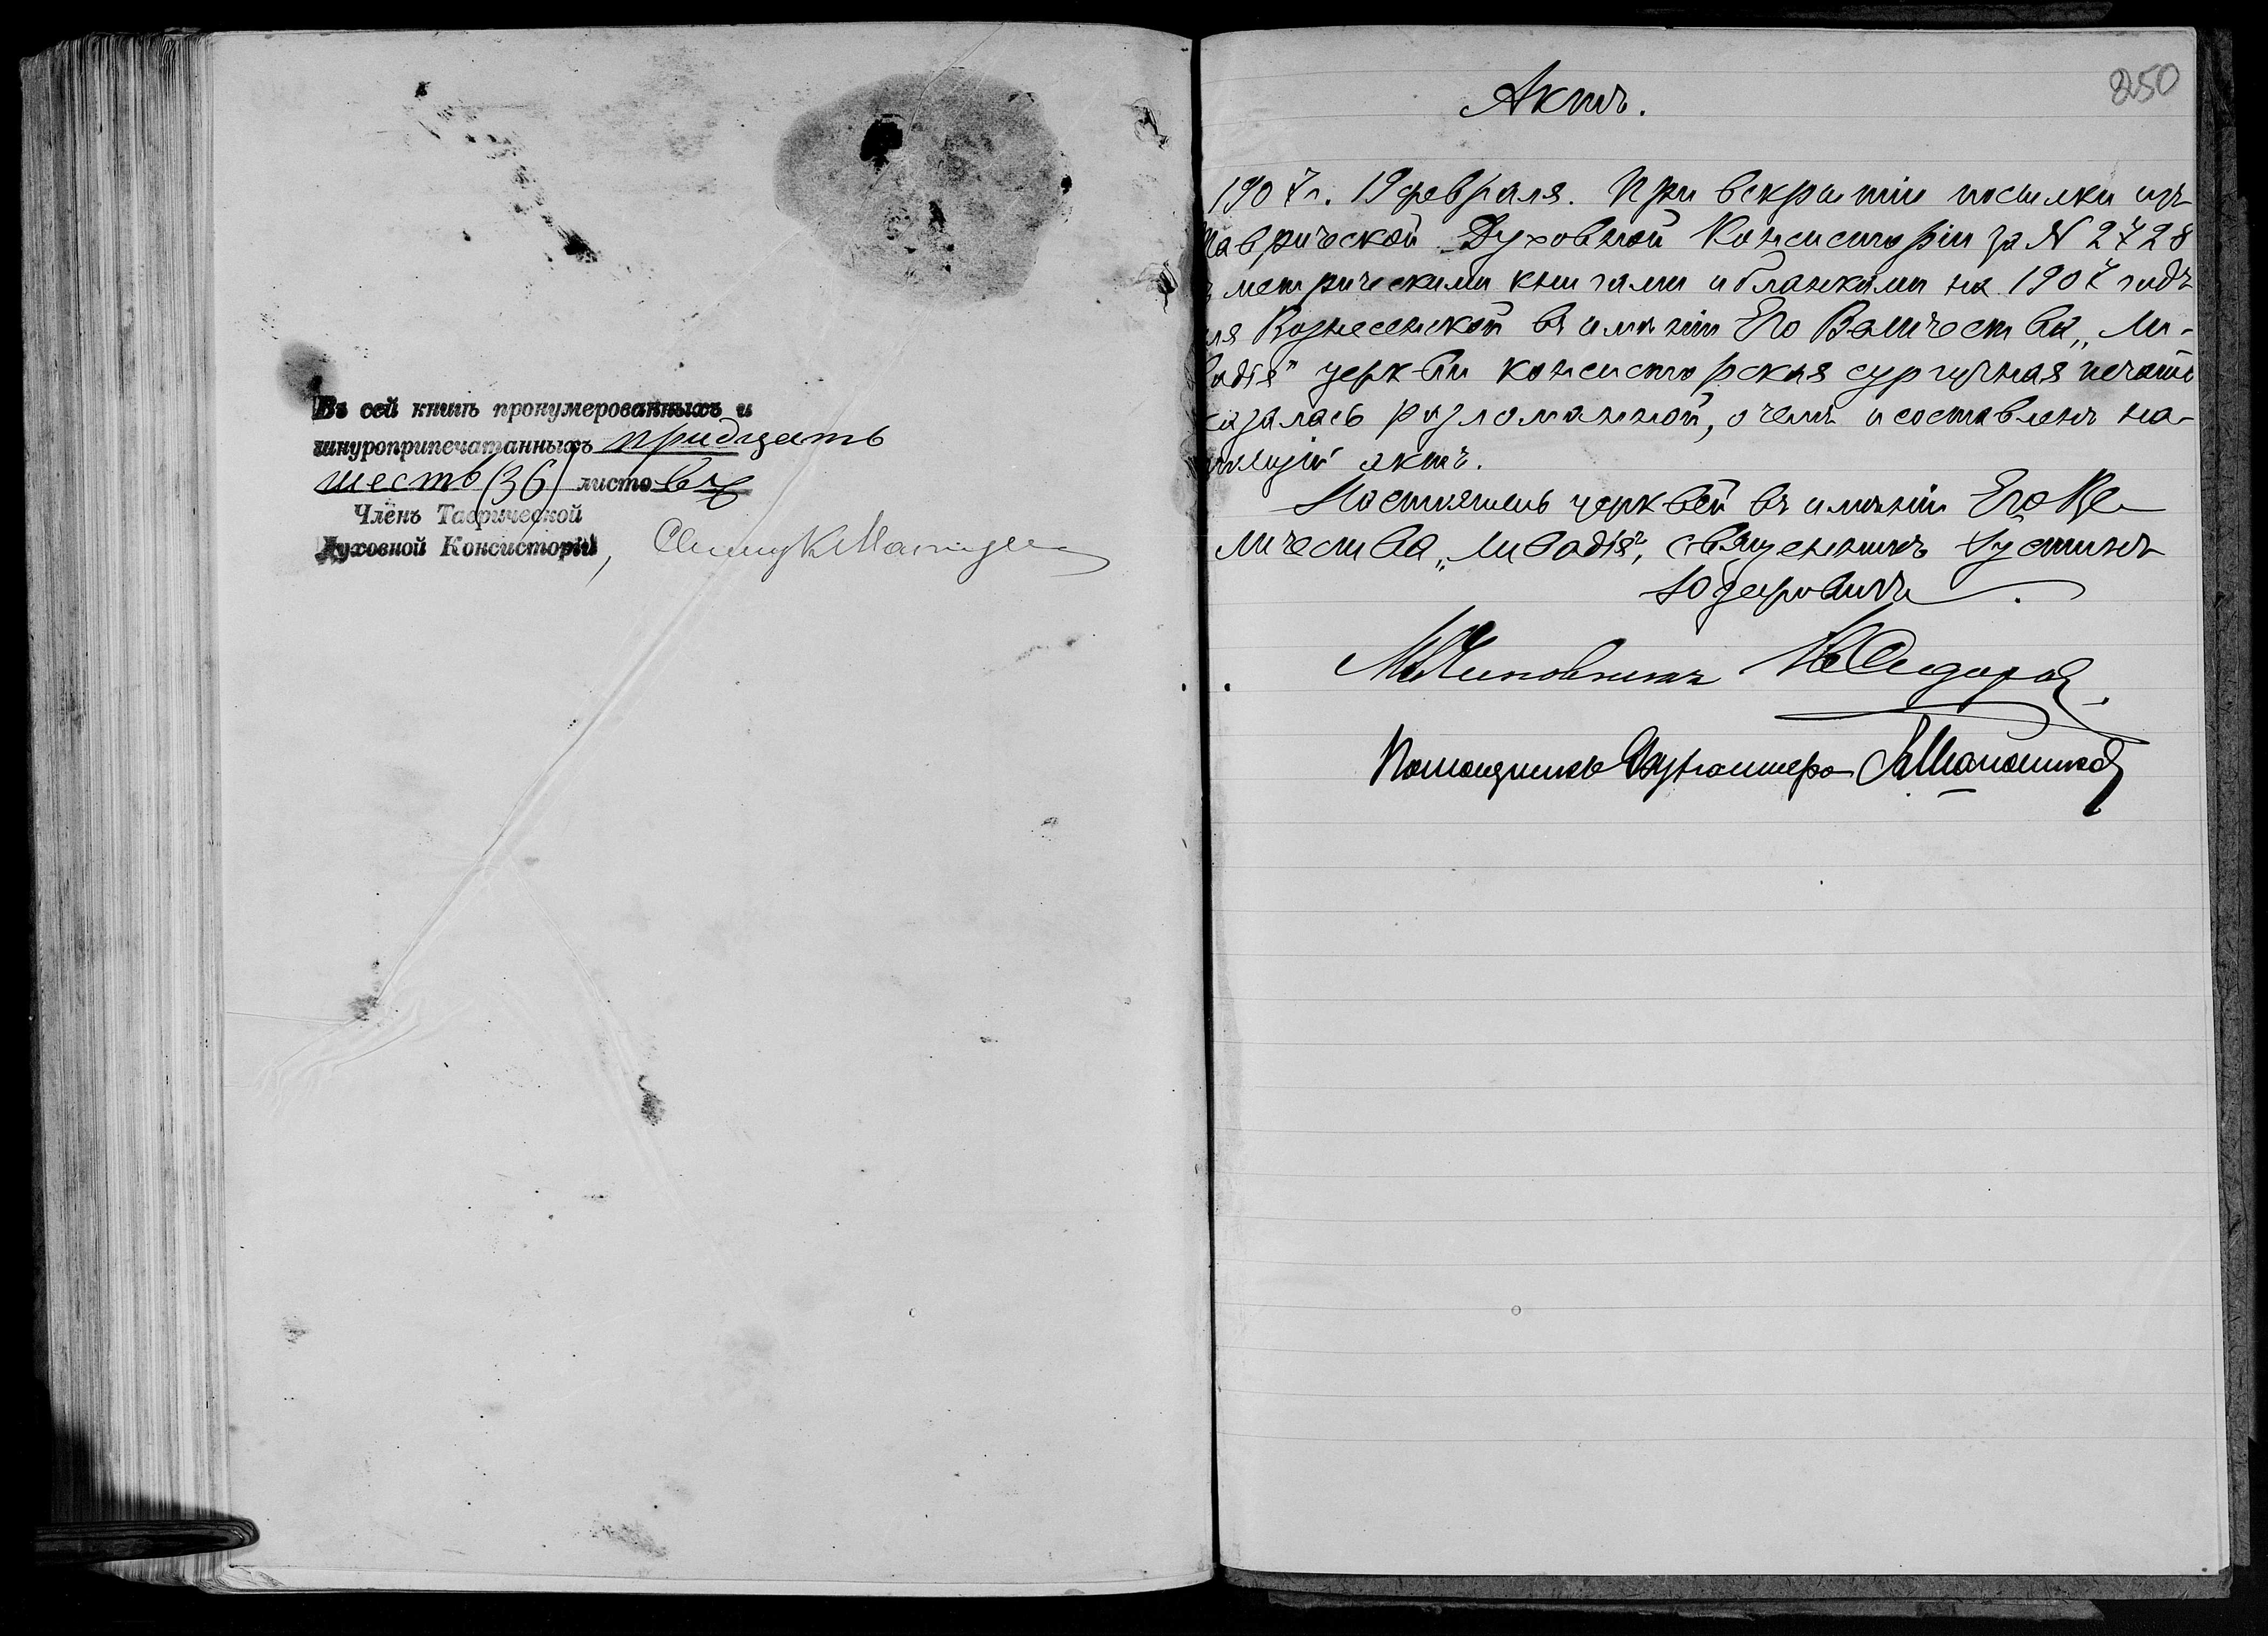 Въ сей книгѣ пронумерованныхъ и
шнуроприпечатанныхъ тридцать
шесть (36) листовъ
Членъ Таврической
Духовной Консисторіи,
250
Актъ.
1907 г. 19 февраля. При вскрытіи посылки изъ
Таврической Духовной Консисторіи за N 2728
съ метрическими книгами и бланками на 1907 годъ
для Вознесенской въ имѣніи Его Величества „Ли-
вадія" церкви консисторская сургучная печать
оказалась разломанной, о чемъ и составленъ на-
стоящій актъ.
Настоятель церквей въ имѣніи Его Ве
личества „Ливадія", священникъ Густинъ
Юзефовичъ.
Чиновникъ Сидоровъ
Помощникъ Бухгалтера